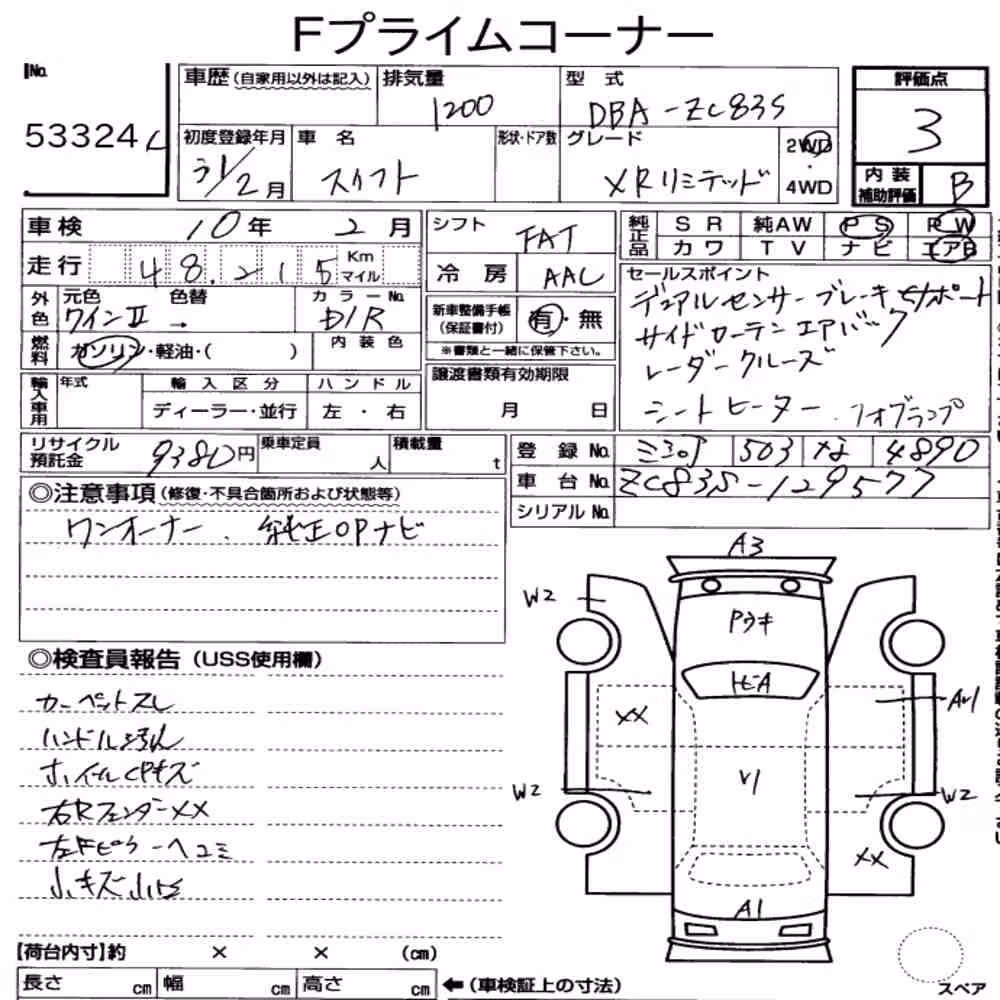 Fプライムコーナー
No.
53324
車歴 (自家用以外は記入)
排気量
1200
型 式
DBA-ZC83S
評価点
3
初度登録年月
31/2月
車 名
スイフト
形状・ドア数
グレード
XRリミテッド
2WD
・
4WD
内 装
補助評価
B
車検
10年 2月
走行
48,215
Km
マイル
外色
元色
ワインⅡ
色替
→
カラーNo.
燃料
ガソリン・軽油・( )
内 装 色
輸入車用
年式
輸 入 区 分
ディーラー・並行
ハ ン ド ル
左 ・ 右
シフト
FAT
冷 房
AAC
新車整備手帳
(保証書付)
有・無
※書類と一緒に保管下さい。
譲渡書類有効期限
月 日
純正品
S R
純AW
P S
P W
カ ワ
T V
ナ ビ
エアB
セールスポイント
デュアルセンサーブレーキサポート
サイドカーテンエアバック
レーダークルーズ
シートヒーター.フォグランプ
リサイクル
預託金
9380円
乗車定員
人
積載量
t
登 録 No.
503 な 4890
車 台 No.
ZC83S-129577
シリアル No.
◎注意事項 (修復・不具合箇所および状態等)
ワンオーナー . 純正OPナビ
◎検査員報告 (USS使用欄)
カーペットスレ
ハンドル汚れ
ホイールCPキズ
右Rフェンダー XX
左Fピラーヘコミ
小キズ小凹
A3
W2
Pウキ
ヒビA
XX
A1
W2
V1
W2
XX
A1
【荷台内寸】約 × × (cm)
長さ cm
幅 cm
高さ cm
←(車検証上の寸法)
スペア